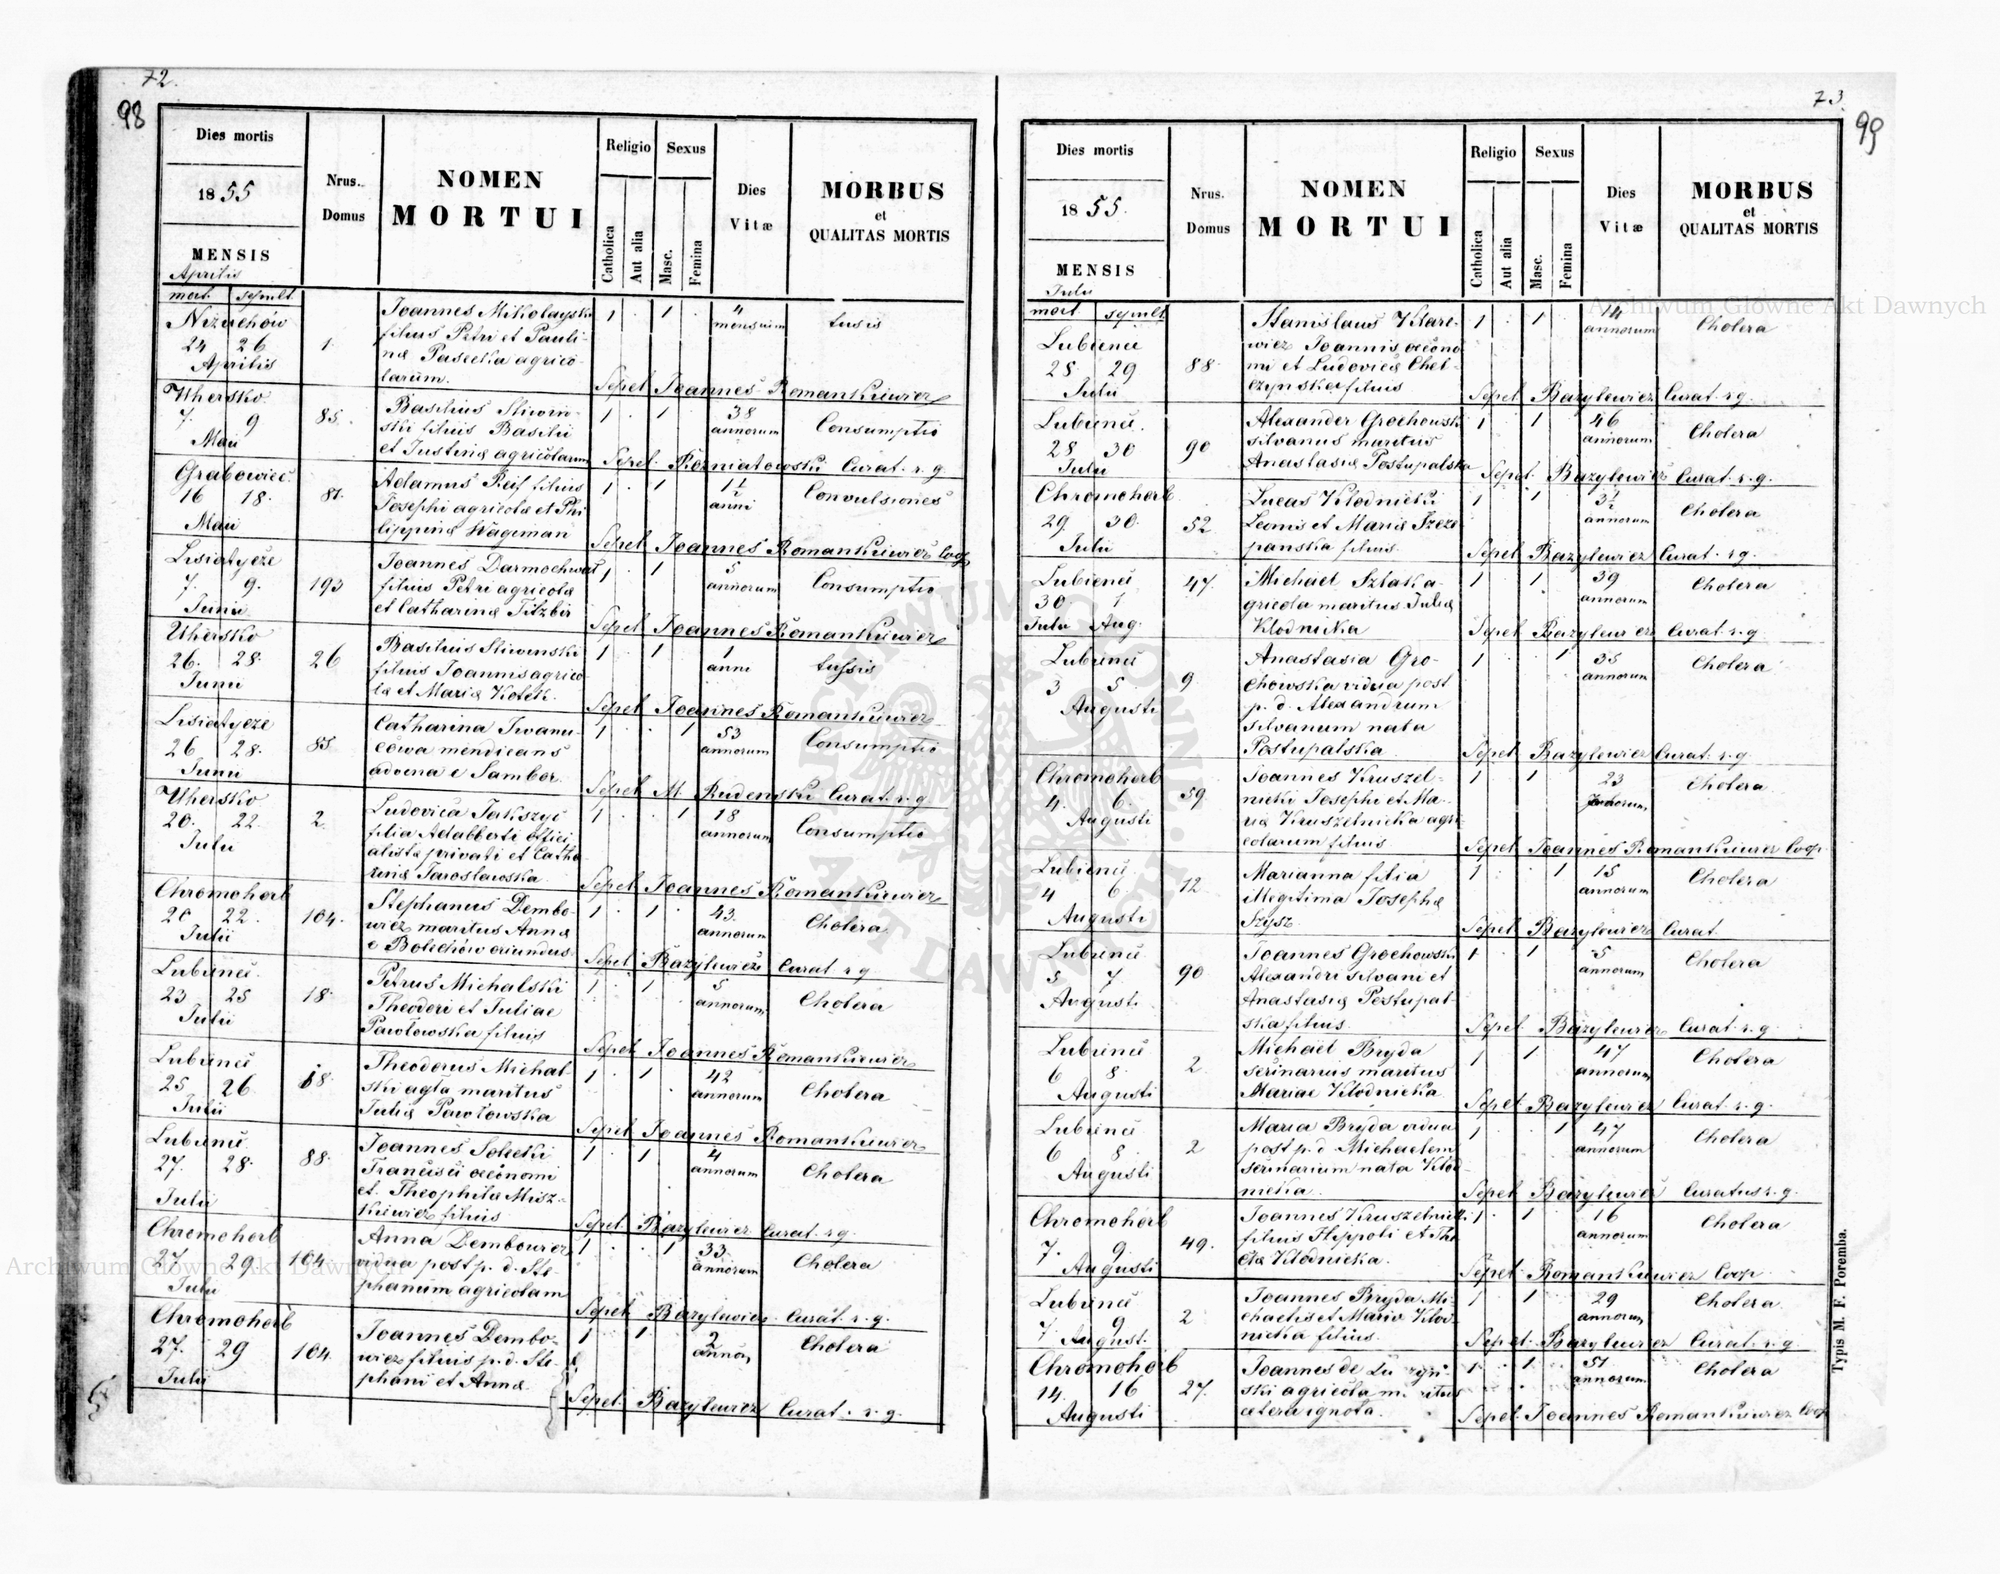 72.
98
Dies mortis
1855
MENSIS
Aprilis
mort. sepult.
Nrus. Domus
NOMEN
MORTUI
Religio
Catholica
Aut alia
Sexus
Masc.
Femina
Dies
Vitæ
MORBUS
et
QUALITAS MORTIS
Niżuchów
24 26
Aprilis
1.
Joannes Mikolayski
filius Petri et Pauli-
næ Pasecka agrico-
larum.
1 1
4
mensium
tusis
Sepel. Joannes Romankiewicz
Uhersko
7. 9
Maii
85.
Basilius Sliwin-
ski filius Basilii
et Justinæ agricolarum
1 1
38
annorum
Consumptio
Sepel. Rozniatowski Curat. r. g.
Grabowiec.
16 18.
Maii
87.
Adamus Reif filius
Josephi agricolæ et Phi
lippinæ Wagiman
1 1
1½
anni
Convulsiones
Sepel. Joannes Romankiewicz Coop.
Lisiatycze
7. 9.
Junii
193
Joannes Darmochwat
filius Petri agricolæ
et Catharinæ Titzbir
1 1
5
annorum
Consumptio
Sepel. Joannes Romankiewicz
Uhersko
26. 28.
Junii
26
Basilius Sliwinski
filius Joannis agrico-
læ et Mariæ Kotek.
1 1
1
anni
tussis
Sepel. Joannes Romankiewicz
Lisiatycze
26 28.
Junii
85.
Catharina Iwanu-
cowa mendicans
advena e Sambor.
1 1
53
annorum
Consumptio
Sepel. M. Rudenski Curat. r. g
Uhersko
20. 22.
Julii
2.
Ludovica Jakszyc
filia Adalberti offici
alistæ privati et Catha
rinæ Jaroslawska.
1 1
18
annorum
Consumptio
Sepel. Joannes Romankiewicz
Chromohorb
20 22.
Julii
104.
Stephanus Dembo-
wicz maritus Annæ
e Bolechów oriundus.
1 1
43.
annorum
Cholera.
Sepel. Bazylewicz Curat r g
Lubience.
23 25
Julii
18.
Petrus Michalski
Theodori et Juliae
Pawłowska filius
1
5
annorum
Cholera
Sepel. Joannes Romankiewicz
Lubience
25 26
Julii
18.
Theodorus Michal
ski agla maritus
Juliæ Pawłowska
1 1
42
annorum
Cholera
Sepel. Joannes Romankiewicz
Lubience
27. 28.
Julii
88.
Joannes Solecki
Francisci oeconomi
et Theophilæ Misz-
kiewicz filius
1 1
4
annorum
Cholera
Sepel. Bazylewicz Curat. rg.
Chromohorb
27. 29
Julii
104
Anna Dembowicz
vidua post p. d. Ste-
phanum agricolam
1 1
33.
annorum
Cholera
Sepel. Bazylewicz Curat. r. g.
Chromohorb
27. 29
Julii
104.
Joannes Dembo-
wicz filius p. d. Ste-
phani et Annæ
1 1
2
annor,
Cholera
Sepel. Bazylewicz Curat. r. g.
73.
99
Dies mortis
1855.
MENSIS
Julii
mort sepult
Nrus.
Domus
NOMEN
MORTUI
Religio
Catholica
Aut alia
Sexus
Masc.
Femina
Dies
Vitæ
MORBUS
et
QUALITAS MORTIS
Lubience
28. 29
Julii
88.
Stanislaus Klare-
wicz Joannis oecono
mi et Ludovicæ Chel-
czynska filius
1 1
14
annorum
Cholera
Sepel. Bazylewicz Curat. rg.
Lubience.
28 30
Julii
90
Alexander Grochowski
silvanus maritus
Anastasiæ Postupalska
1 1
46
annorum
Cholera
Sepel. Bazylewicz Curat. r. g.
Chromohorb
29 30.
Julii
52
Lucas Kłodnicki
Leonis et Mariæ Szcze
panska filius
1 1
3½
annorum
Cholera
Sepel. Bazylewicz Curat. rg.
Lubience
30. 1
Julii Aug.
47.
Michael Szlak a-
gricola maritus Juliæ
Kłodnicka
1 1
39
annorum
Cholera
Sepel. Bazylewicz Curat. r. g
Lubience
3 5.
Augusti
9
Anastasia Gro-
chowska vidua post
p. d. Alexandrum
silvanum nata
Postupalska
1 1
35
annorum
Cholera
Sepel. Bazylewicz Curat. r. g
Chromohorb
4. 6.
Augusti
59.
Joannes Kruszel-
nicki Josephi et Ma-
riæ Kruszelnicka agri-
colarum filius
1 1
23
Cholera
Sepel. Joannes Romankiewicz Coop.
Lubience
4 6.
Augusti
12
Marianna filia
illegitima Josephæ
Szysz
1 1
15
annorum
Cholera
Sepel. Bazylewicz Curat
Lubience
5 7
Augusti
90
Joannes Grochowski
Alexandri silvani et
Anastasiæ Postupal-
ska filius
1 1
5
annorum
Cholera
Sepel. Bazylewicz Curat. r. g.
Lubience
6 8.
Augusti
2.
Michael Bryda
serinarius maritus
Mariae Kłodnicka
1 1
47
annorum
Cholera
Sepel. Bazylewicz Curat. r. g.
Lubience
6 8.
Augusti
2
Maria Bryda vidua
post p. d. Michaelem
serinarium nata Kłod
nicka.
1 1
47
annorum
Cholera
Sepel. Bazylewicz Curatus r. g.
Chromohorb
7. 9.
Augusti
49.
Joannes Kruszelnicki
filius Hippoli et The
clæ Kłodnicka.
1 1
16
annorum
Cholera
Sepel. Romankiewicz Coop
Lubience
7 9
August.
2
Joannes Bryda Mi-
chaelis et Mariæ Kłod-
nicka filius.
1 1
29
annorum
Cholera
Sepel. Bazylewicz Curat. r. g.
Chromohorb
14. 16
Augusti
27.
Joannes de
ski agricola maritus
cætera ignota.
1 1
51
annorum
Cholera
Sepel. Joannes Romankiewicz Coop
Typis M. F. Poremba.
Archiwum Główne Akt Dawnych
Archiwum Główne Akt Dawnych
ARCHIWUM GŁÓWNE AKT DAWNYCH